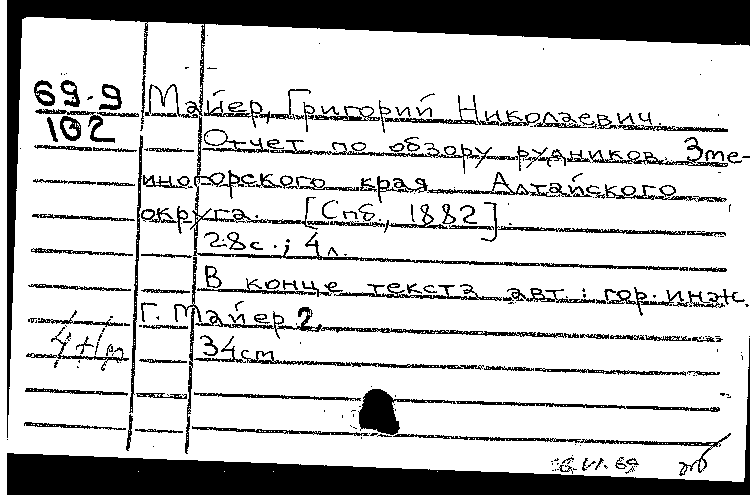 69.9
102
Майер, Григорий Николаевич.
Отчет по обзору рудников Зме-
иногорского края Алтайского
округа. [Спб., 1882].
28с.; 4л.
В конце текста авт.: гор. инж.
Г. Майер 2.
34см
.VI.69